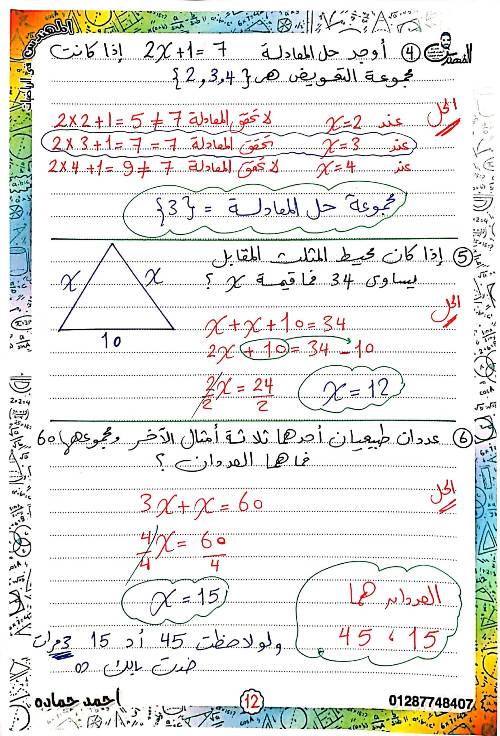 ④ أوجد حل المعادلة 2x+1=7 إذا كانت
مجموعة التعويض هى {2,3,4}
الحل
عند x=2 لا تحقق المعادلة 2×2+1=5≠7
عند x=3 تحقق المعادلة 2×3+1=7=7
عند x=4 لا تحقق المعادلة 2×4+1=9≠7
مجموعة حل المعادلة = {3}
⑤ إذا كان محيط المثلث المقابل
يساوى 34 فما قيمة x ؟
x
x
10
الحل
x+x+10=34
2x+10=34-10
2x/2=24/2
x=12
⑥ عددان طبيعيان أحدهما ثلاثة أمثال الآخر ومجموعهما 60
فما هما العددان ؟
الحل
3x+x=60
4x/4=60/4
x=15
العددان هما
15 ، 45
ولو لاحظت 45 أد 15 3 مرات
خدت بالك
احمد حماده
12
01287748407